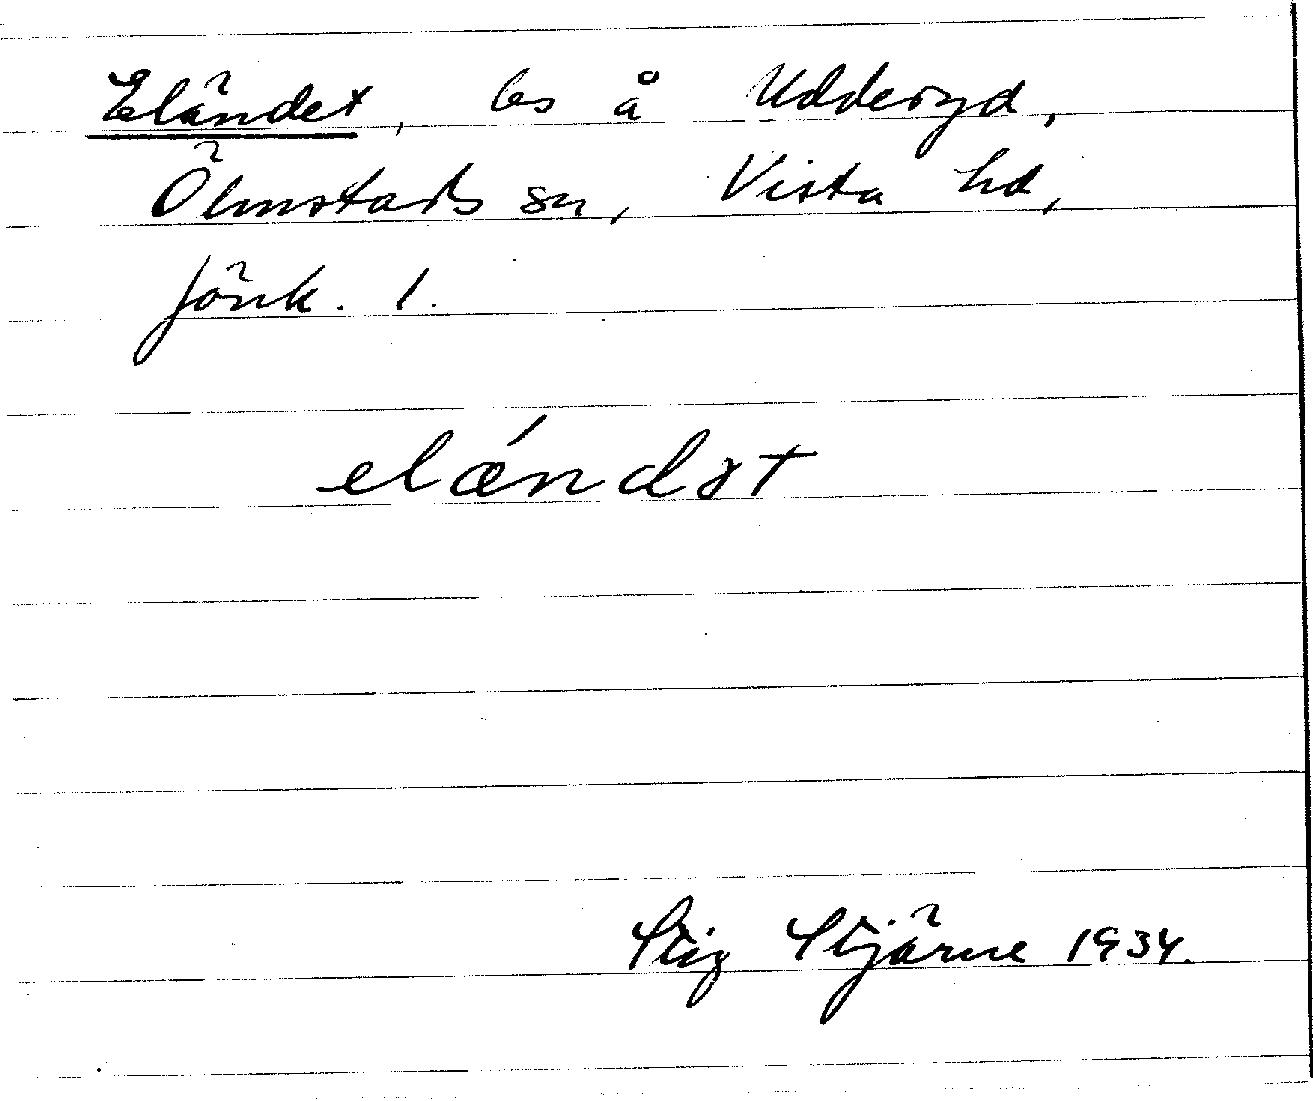 Eländet, ls å Udderyd,
Ölmstads sn, Vista hd,
Jönk. l.
elǽndət
Stig Stjärne 1934.